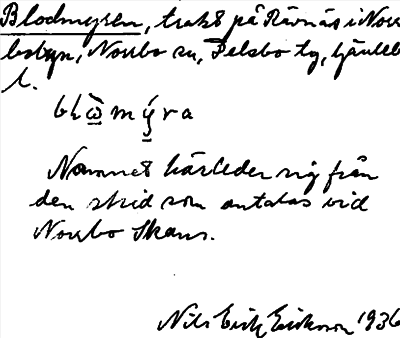 Blodmyren, trakt på Rävnäs i Norr
bobyn, Norrbo sn,
l.
Namnet härleder sig från
den strid som antatas vid
Norrbo Skans.
Nils Erik Erikson 1936